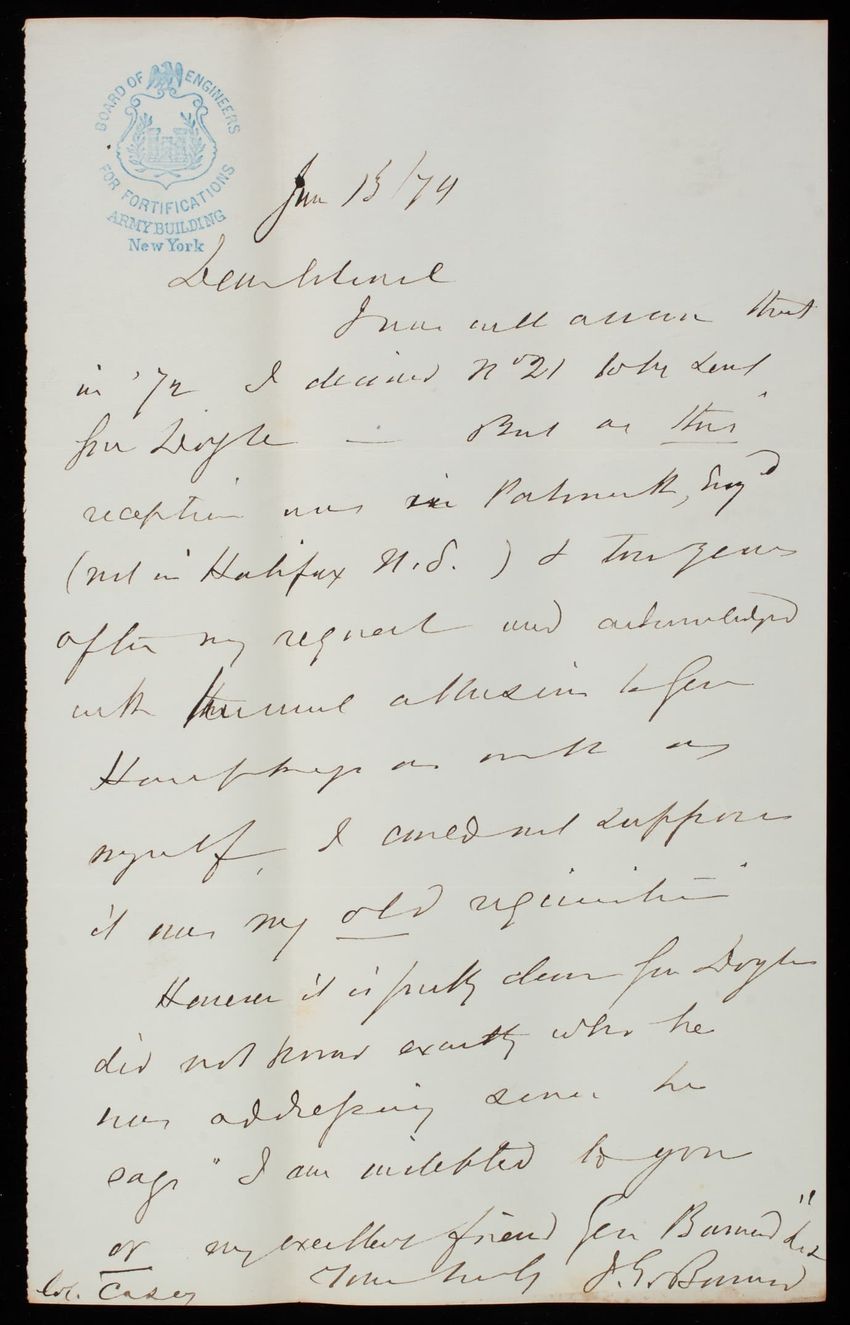 BOARD OF ENGINEERS
FOR FORTIFICATIONS
ARMY BUILDING
New York
Jan 15/74
Dear Colonel
I was well aware that
in '72 I desired No 21 to be sent
Gen Doyle — But as this
reception was in Portsmouth, Engd
(not in Halifax N.S.) & two years
after my request and acknowledged
with allusion to Gen
Humphreys as well as
myself, I could not suppose
it was my old requisition
However it is pretty clear Gen Doyle
did not know exactly who he
was addressing since he
says "I am indebted to you
or my excellent friend Gen Barnard" &c
Yours truly J.G. Barnard
Col. Casey